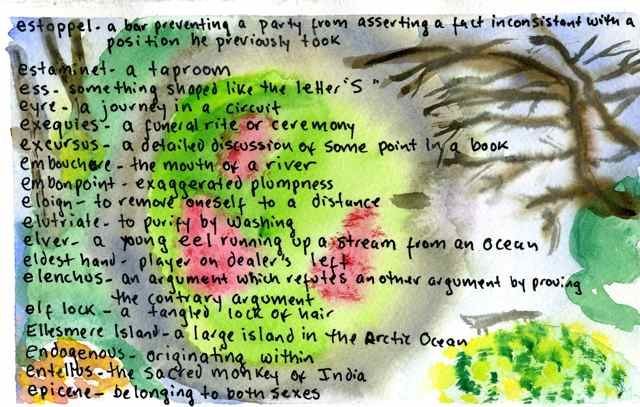 estoppel - a bar preventing a party from asserting a fact inconsistent with a
position he previously took
estaminet - a taproom
ess - something shaped like the letter "S"
eyre - a journey in a circuit
exequies - a funeral rite or ceremony
excursus - a detailed discussion of some point in a book
embouchure - the mouth of a river
embonpoint - exaggerated plumpness
eloign - to remove oneself to a distance
elutriate - to purify by washing
elver - a young eel running up a stream from an ocean
eldest hand - player on dealer's left
elenchus - an argument which refutes another argument by proving
the contrary argument
elf lock - a tangled lock of hair
Ellesmere Island - a large island in the Arctic Ocean
endogenous - originating within
entellus - the sacred monkey of India
epicene - belonging to both sexes